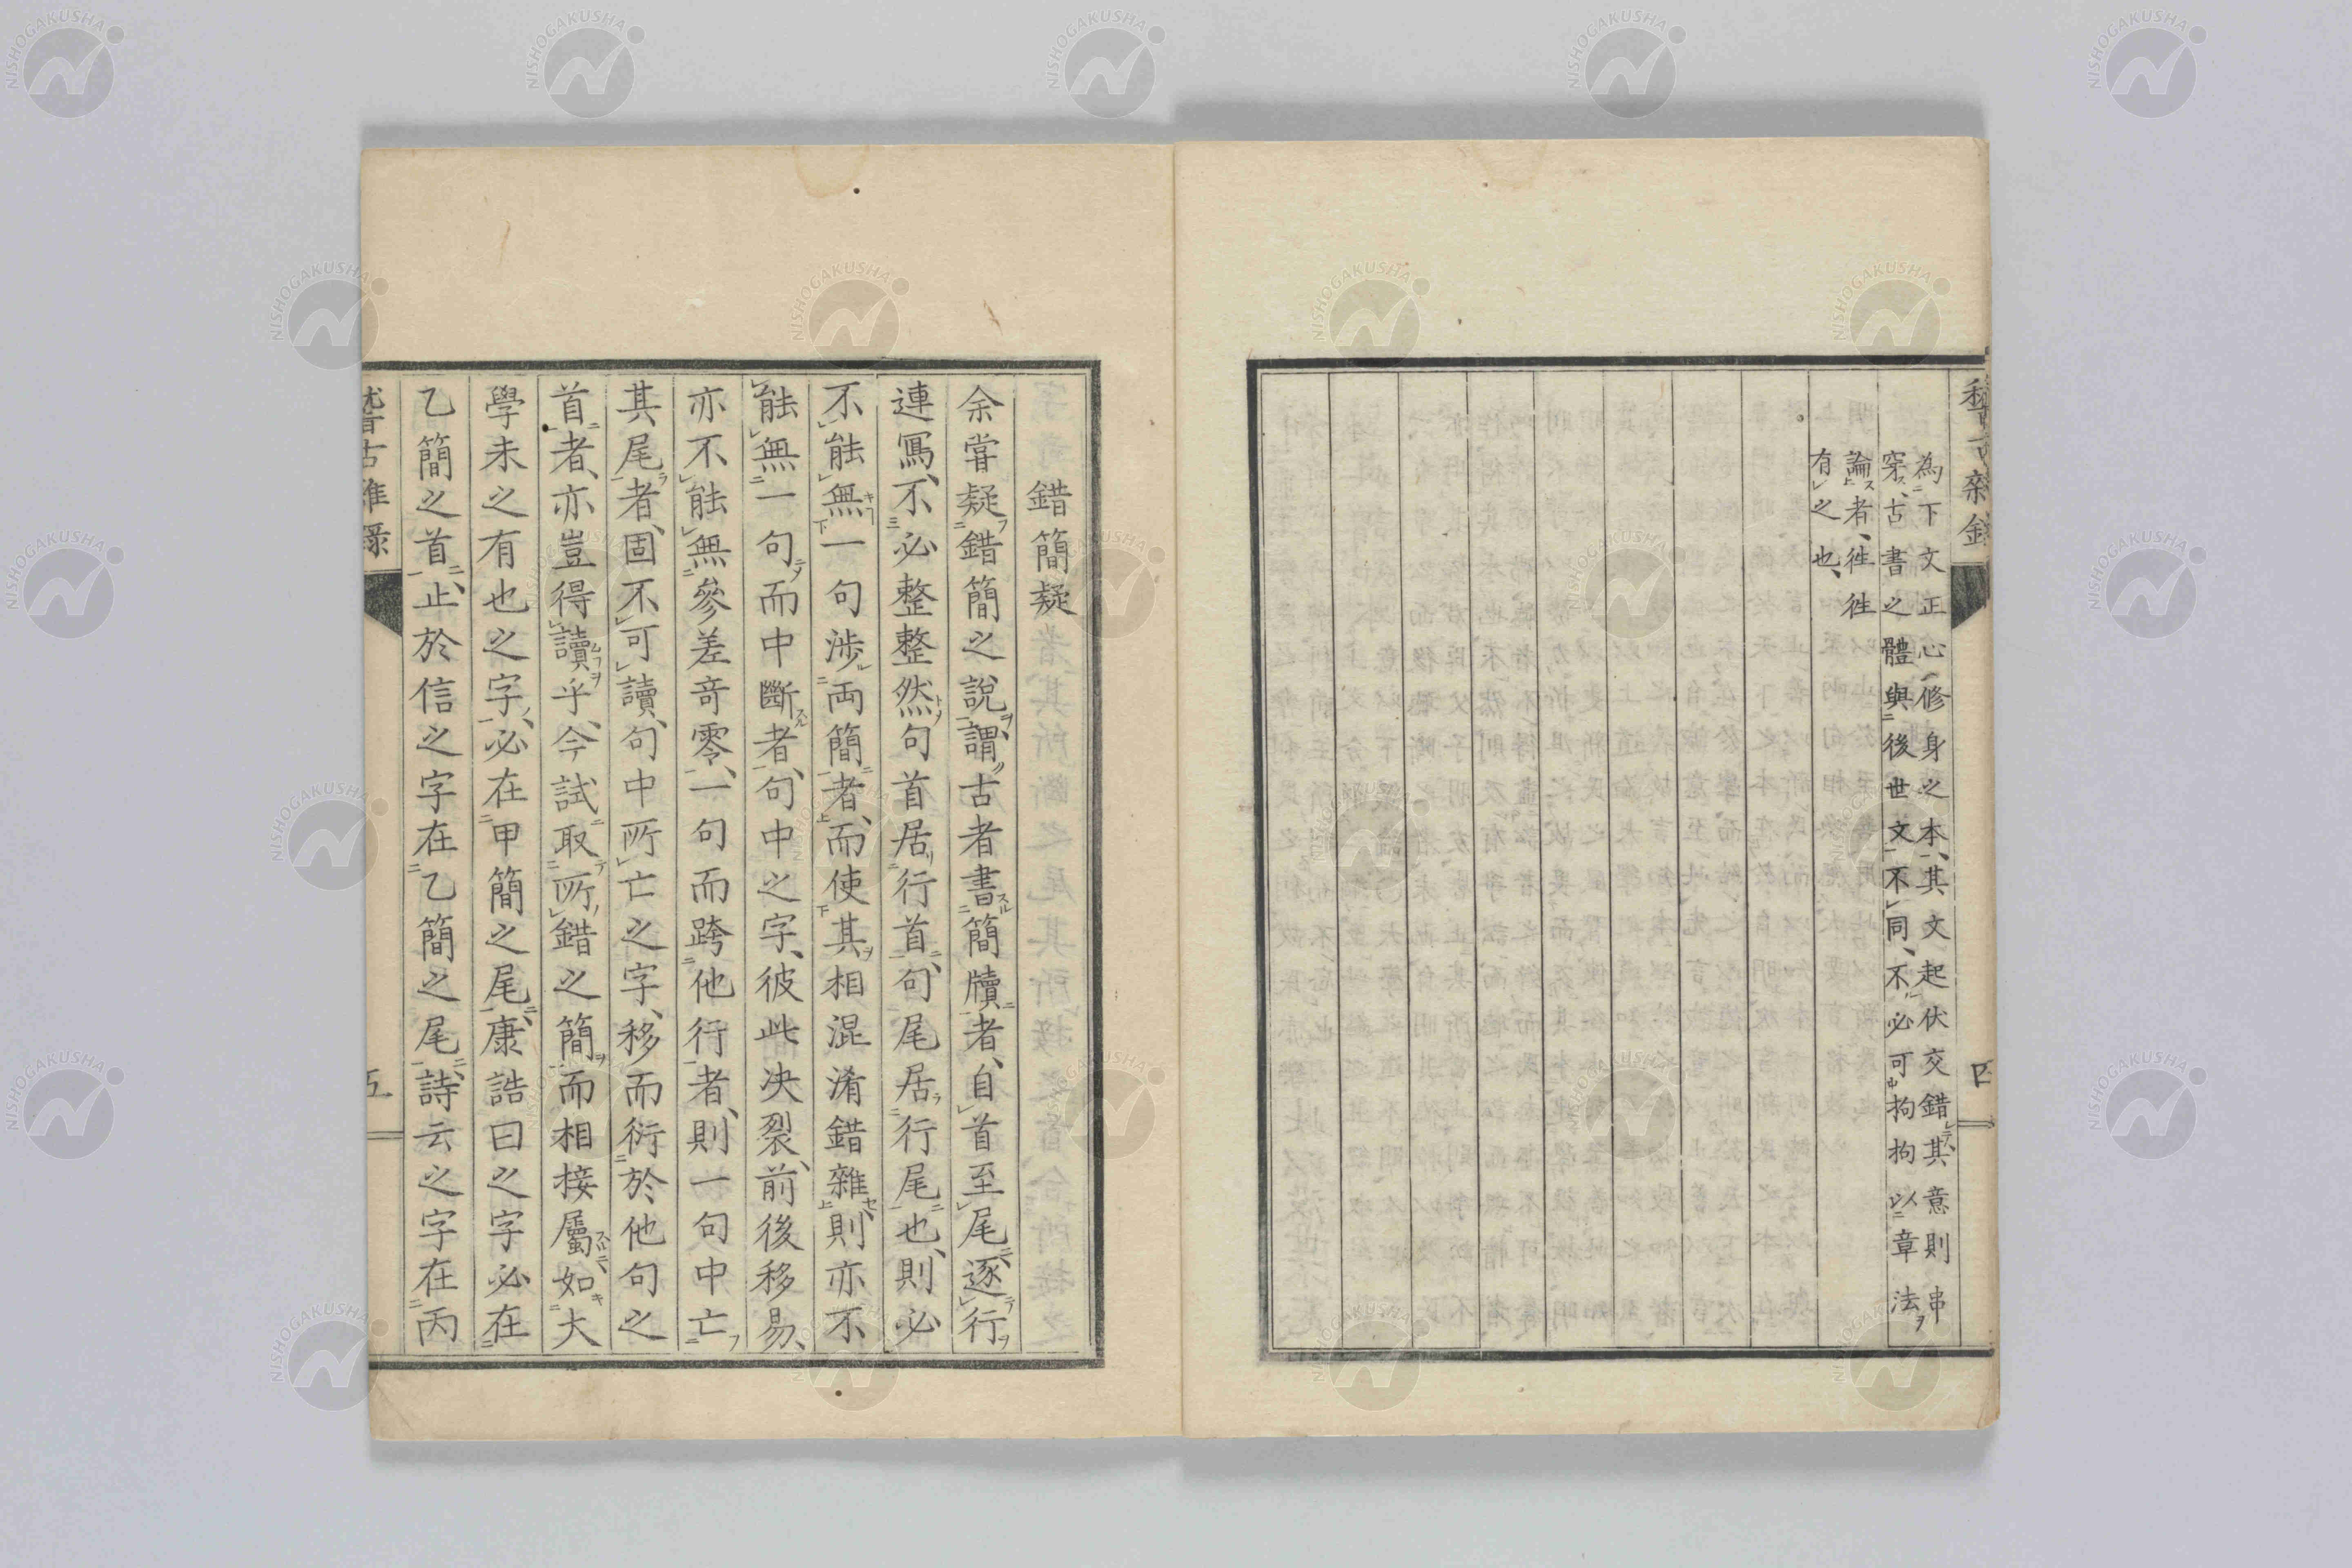 稽古雜錄
四
為下文正心修身之本、其文起伏交錯、其意則串
穿、古書之體與後世文不同、不必可拘拘以章法
論者、徃徃
有之也、
錯簡疑
余甞疑錯簡之說、謂古者書簡牘者、自首至尾、逐行
連寫、不必整整然句首居行首、句尾居行尾也、則必
不能無一句涉兩簡者、而使其相混淆錯雜、則亦不
能無一句而中斷者、句中之字、彼此决裂、前後移易、
亦不能無參差奇零、一句而跨他行者、則一句中亡
其尾者、固不可讀、句中所亡之字、移而衍於他句之
首者、亦豈得讀乎、今試取所錯之簡而相接屬、如大
學未之有也之字、必在甲簡之尾、康誥曰之字必在
乙簡之首、止於信之字在乙簡之尾、詩云之字在丙
稽古雜錄
五
NISHOGAKUSHA